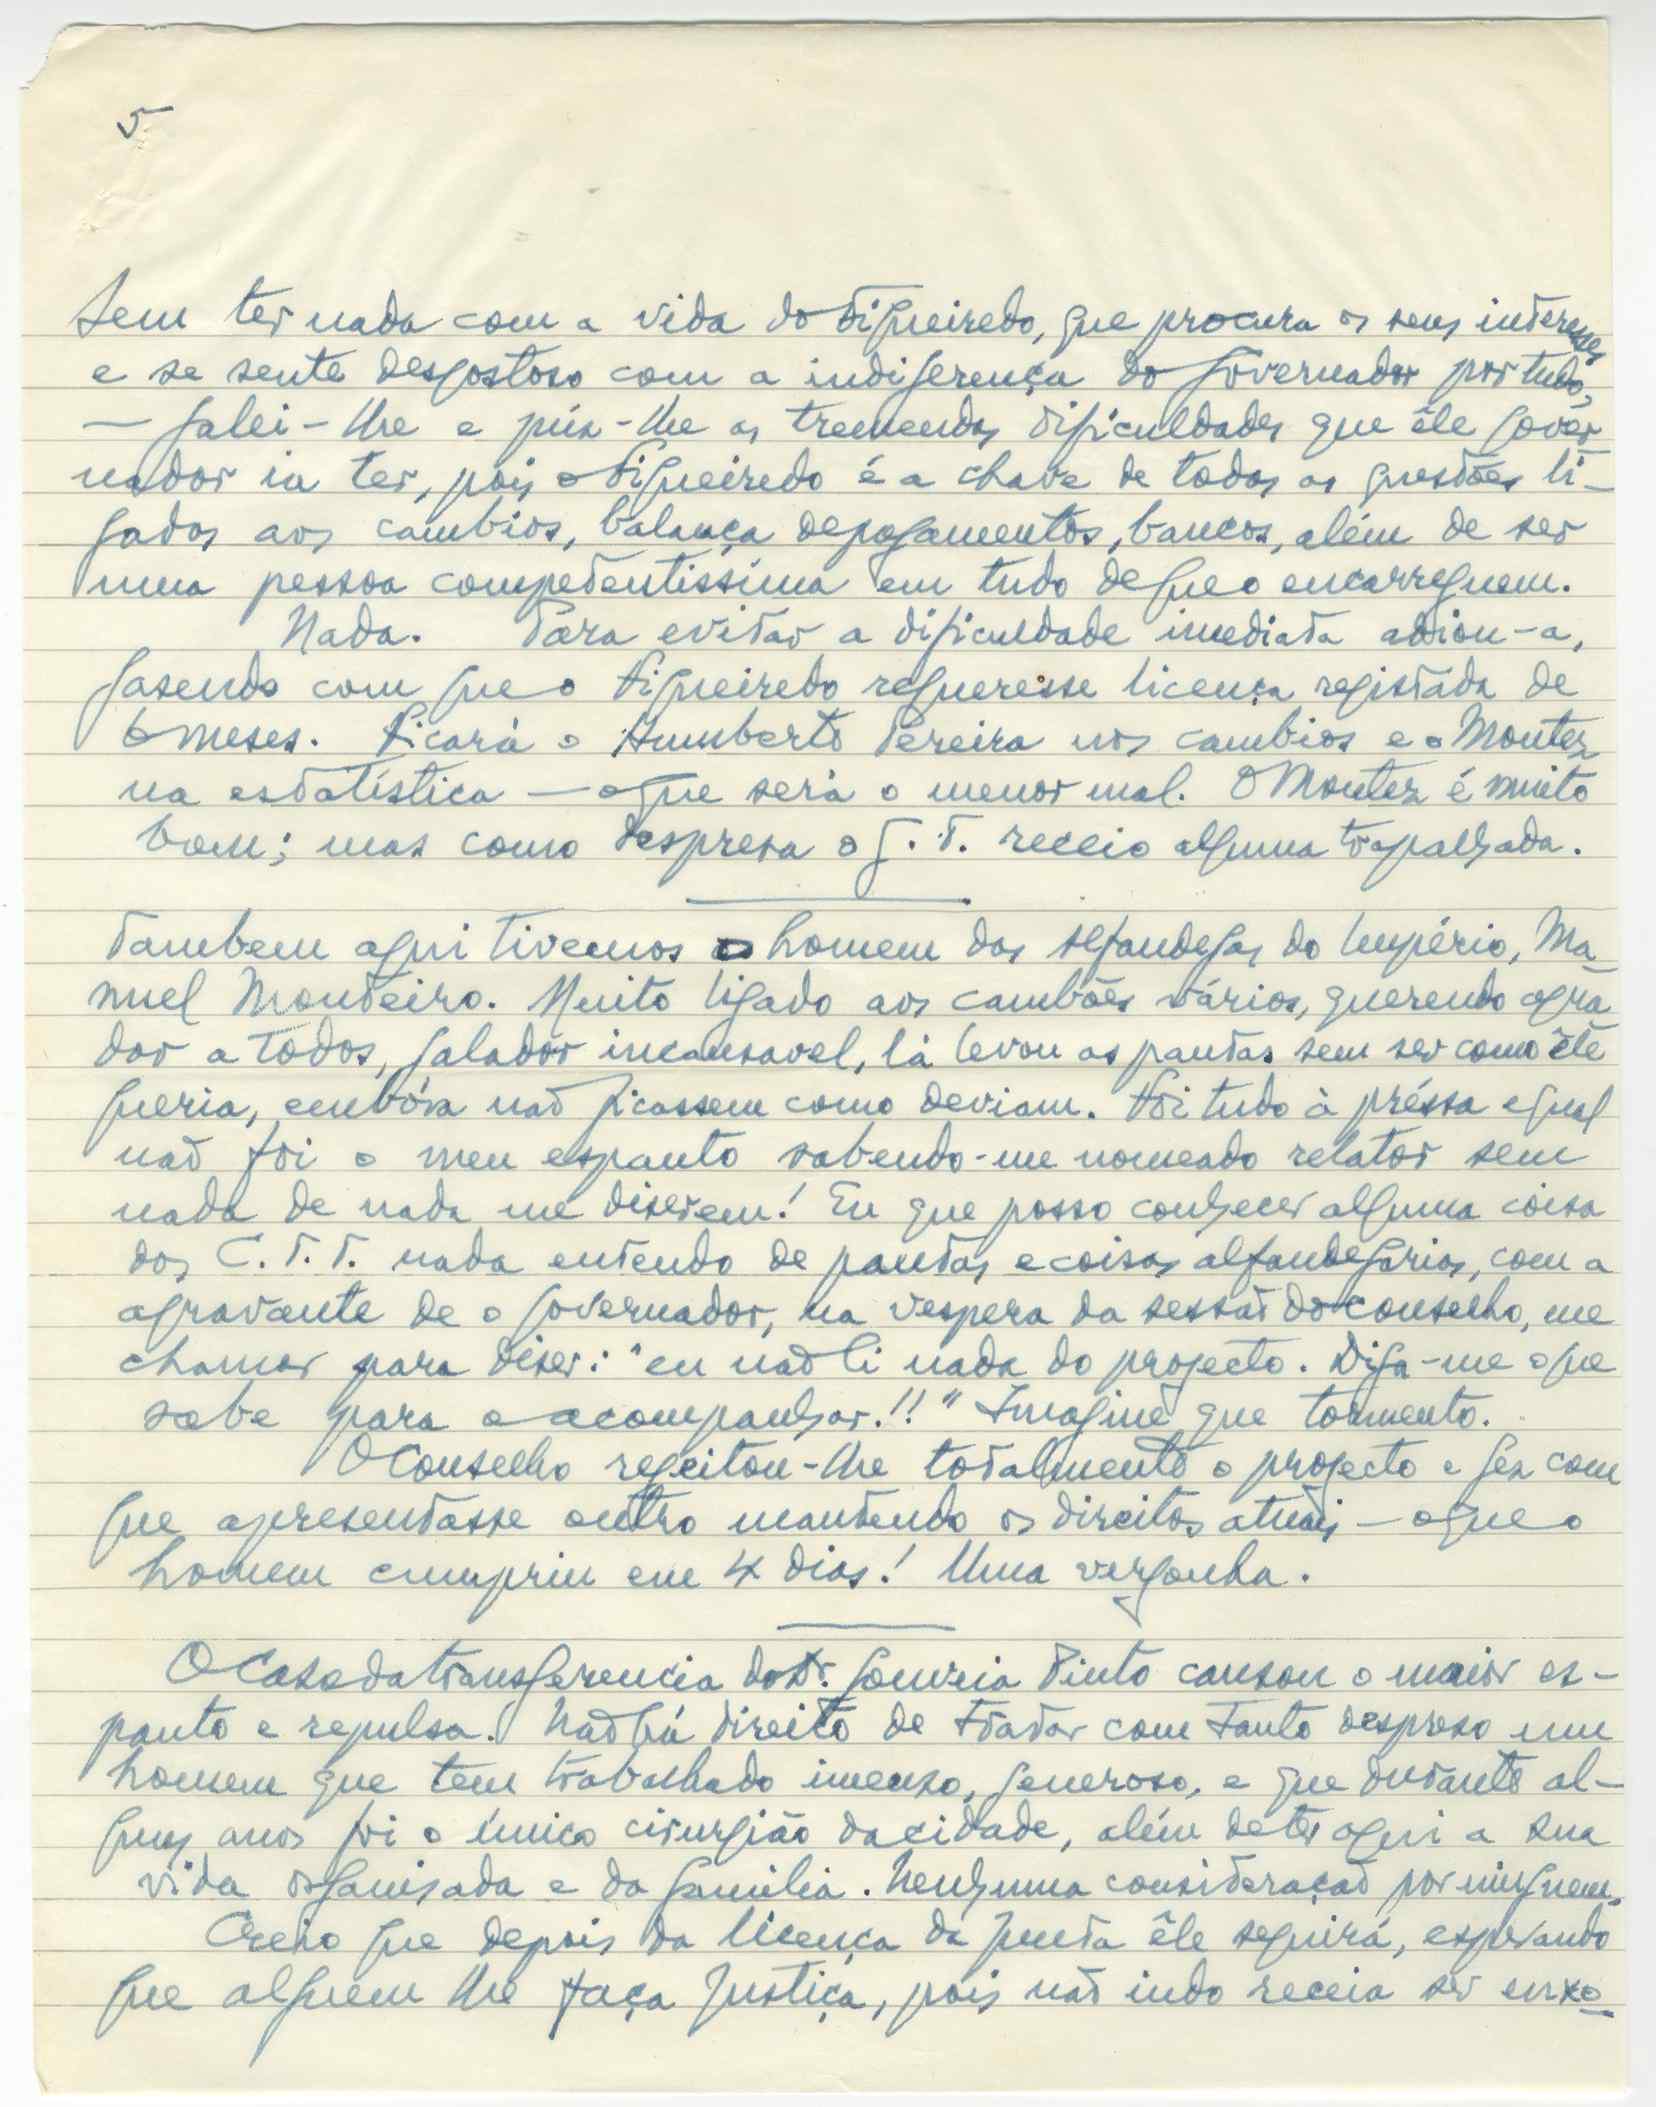 5
Sem ter nada com a vida do Figueiredo, que procura os seus interesses
e se sente desgostoso com a indiferença do Governador por tudo,
— falei-lhe e púz-lhe as tremendas dificuldades que êle gover-
nador ia ter, pois o Figueiredo é a chave de todas as questões li-
gadas aos cambios, balança de pagamentos, bancos, além de ser
uma pessoa competentissima em tudo de que o encarreguem.
Nada. Para evitar a dificuldade imediata adiou-a,
fasendo com que o Figueiredo requeresse licença registada de
6 meses. Ficará o Humberto Pereira nos cambios e o Montez
na estatística — o que será o menor mal. O Montez é muito
bom; mas como despresa o G. T. receio alguma trapalhada.
Tambem aqui tivemos o homem das Alfandegas do Império, Ma-
nuel Monteiro. Muito ligado aos cambões vários, querendo agra-
dar a todos, falador incansavel, lá levou as pautas sem ser como êle
queria, embóra não ficassem como deviam. Foi tudo à préssa e qual
não foi o meu espanto sabendo-me nomeado relator sem
nada de nada me diserem! Eu que posso conhecer alguma coisa
dos C.T.T. nada entendo de pautas e coisas alfandegárias, com a
agravante de o governador, na vespera da sessão do conselho, me
chamar para diser: "eu não li nada do projecto. Diga-me o que
sabe para o acompanhar.!!" Imagine que tormento.
O Conselho regeitou-lhe totalmente o projecto e fez com
que apresentasse outro mantendo os direitos atuais — o que o
homem cumpriu em 4 dias! Uma vergonha.
O Caso da transferencia do Dr. Gouveia Pinto causou o maior es-
panto e repulsa. Não há direito de tratar com tanto despreso um
homem que tem trabalhado imenso, generoso, e que durante al-
guns anos foi o único cirurgião da cidade, além de ter aqui a sua
vida organisada e da familia. Nenhuma consideração por ninguem.
Creio que depois da licença da Junta êle seguirá, esperando
que alguem lhe faça Justiça, pois não indo receia ser enxo-